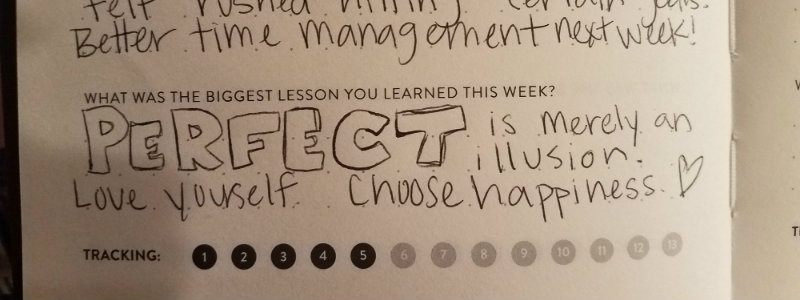 felt rushed hitting certain
Better time management next week!
WHAT WAS THE BIGGEST LESSON YOU LEARNED THIS WEEK?
PERFECT is merely an
illusion.
Love yourself. Choose happiness. ♡
TRACKING: 1 2 3 4 5 6 7 8 9 10 11 12 13